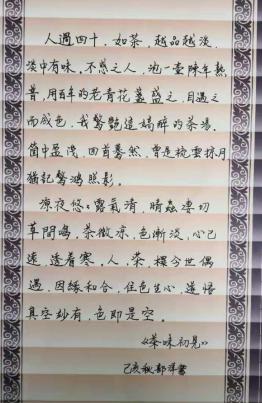 人過四十，如茶，越品越淡，
淡中有味。不惑之人，泡一壺陳年熟
普，用百年的老青花蓋盛之，目遇之
而成色，我驚艷這嬌醉的茶湯。
箇中盈淺，回首驀然，曾是掩雲捺月
猶記驚鴻照影。
涼夜悠，露氣清，晴蟲淒切
草間鳴，茶微涼，色漸淡，心已
遠，透着寒，人、茶，擇今世偶
遇，因緣和合，住色生心，遂悟
真空妙有，色即是空。
《茶味初見》
己亥秋 祥書